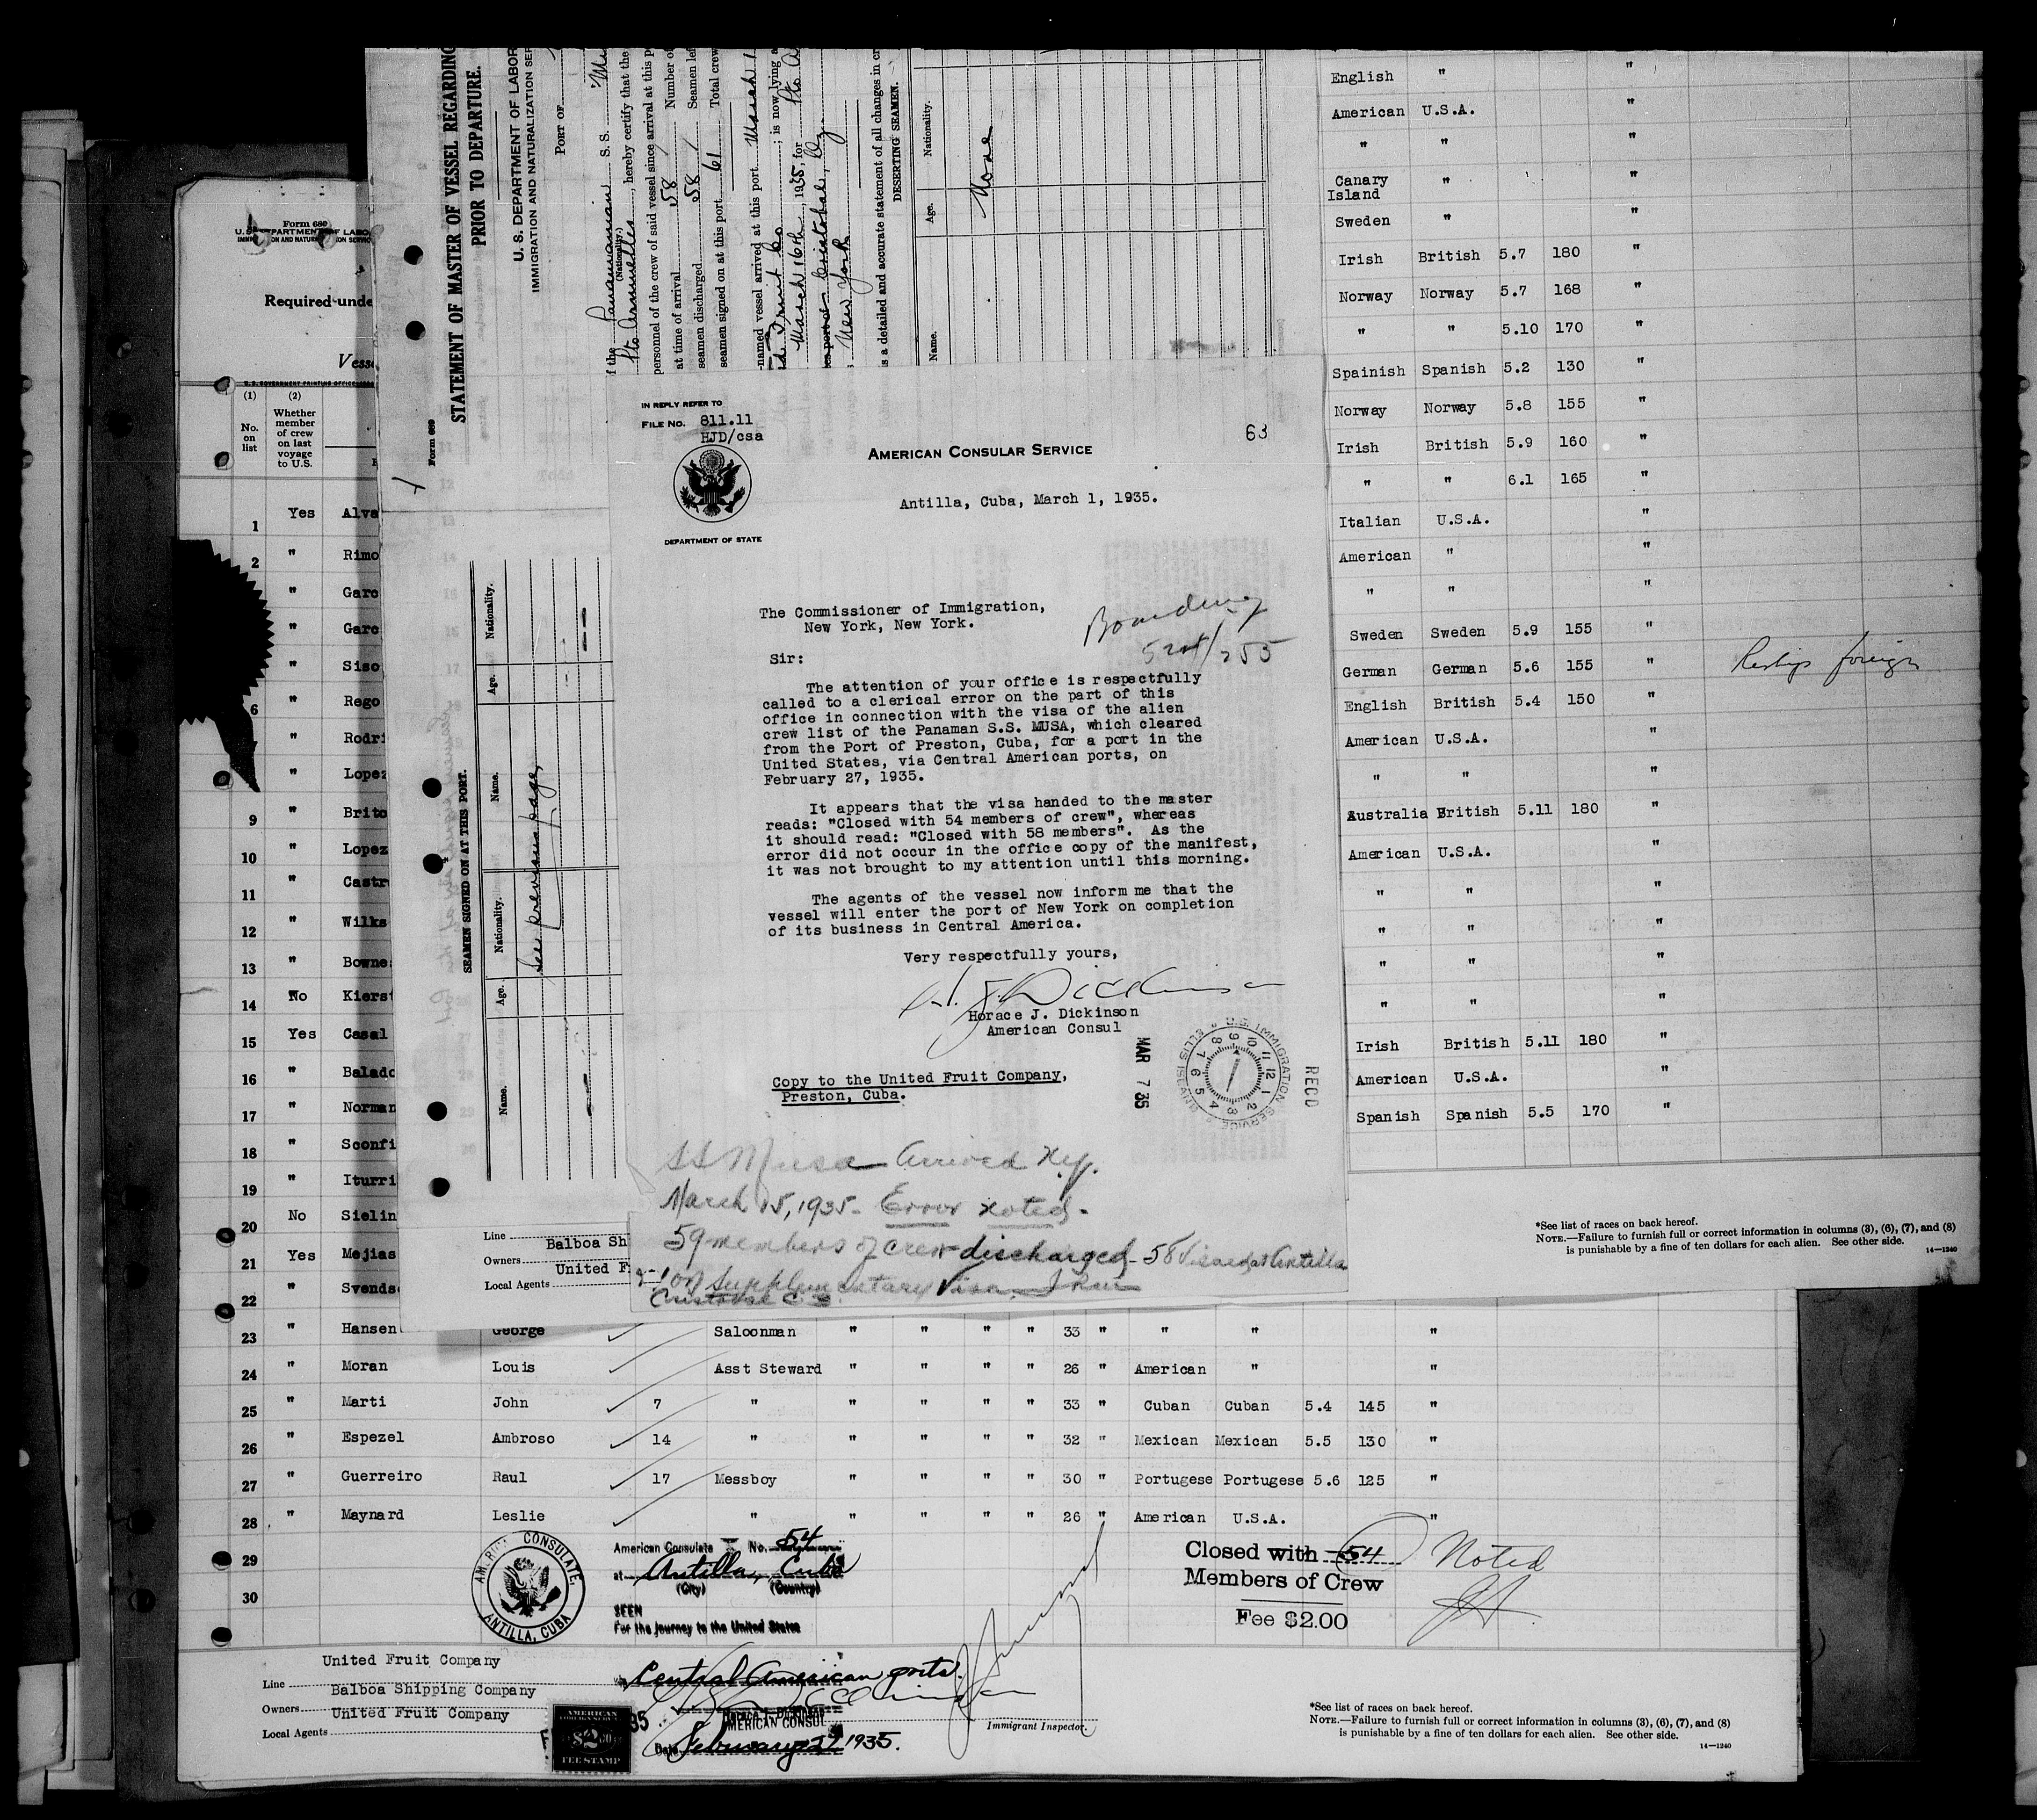 Form 689
STATEMENT OF MASTER OF VESSEL REGARDING
PRIOR TO DEPARTURE.
U. S. DEPARTMENT OF LABOR
IMMIGRATION AND NATURALIZATION SER
PORT OF
f the Panamanian S. S. Mu
(Nationality.)
Pto Armuelles, hereby certify that the
personnel of the crew of said vessel since arrival at this p
at time of arrival 58 Number of
seamen discharged 58 Seamen lef
seamen signed on at this port 61 Total crew
-named vessel arrived at this port March 1
Fruit Co ; is now lying a
March 16th, 1935, for Pto A
Cristobal, Cz.
New York
s a detailed and accurate statement of all changes in cr
DESERTING SEAMEN.
Name. Age. Nationality.
None
SEAMEN SIGNED ON AT THIS PORT.
Name. Age. Nationality. Name. Age. Nationality.
See previous page,
Line
Owners Balboa Sh
Local Agents United F
Form 680
U. S. DEPARTMENT OF LABO
IMMIGRATION AND NATURALIZATION SERVIC
Required unde
Vesse
U. S. GOVERNMENT PRINTING OFFICE
(1) (2)
No. on list
Whether member of crew on last voyage to U.S.
1 Yes Alva
2 " Rimo
" Garc
" Garc
" Siso
6 " Rego
" Rodri
" Lopez
9 " Brito
10 " Lopez
11 " Castr
12 " Wilks
13 " Bowne
14 No Kierst
15 Yes Casal
16 " Balado
17 " Norman
18 " Sconfi
19 " Iturri
20 No Sielin
21 Yes Mejias
22 " Svends
23 " Hansen George Saloonman " " " " 33 " " " "
24 " Moran Louis Asst Steward " " " " 26 " American " "
25 " Marti John 7 " " " " " 33 " Cuban Cuban 5.4 145 "
26 " Espezel Ambroso 14 " " " " " 32 " Mexican Mexican 5.5 130 "
27 " Guerreiro Raul 17 Messboy " " " " 30 " Portugese Portugese 5.6 125 "
28 " Maynard Leslie " " " " " 26 " American U.S.A. "
29
30
IN REPLY REFER TO
FILE NO. 811.11
HJD/csa
63
AMERICAN CONSULAR SERVICE
Antilla, Cuba, March 1, 1935.
DEPARTMENT OF STATE
The Commissioner of Immigration,
New York, New York.
Boarding
Sir:
The attention of your office is respectfully
called to a clerical error on the part of this
office in connection with the visa of the alien
crew list of the Panaman S.S. MUSA, which cleared
from the Port of Preston, Cuba, for a port in the
United States, via Central American ports, on
February 27, 1935.
It appears that the visa handed to the master
reads: "Closed with 54 members of crew", whereas
it should read: "Closed with 58 members". As the
error did not occur in the office copy of the manifest,
it was not brought to my attention until this morning.
The agents of the vessel now inform me that the
vessel will enter the port of New York on completion
of its business in Central America.
Very respectfully yours,
H. J. Dickinson
Horace J. Dickinson
American Consul
Copy to the United Fruit Company,
Preston, Cuba.
MAR 7 35
U.S. IMMIGRATION SERVICE ELLIS ISLAND
REC'D
SS Musa Arrived N.Y.
March 15, 1935 - Error noted -
59 members of crew discharged - 58 Visaed at Antilla
& - 1 on Supplementary Visa from
Cristobal C Z.
English " "
American U.S.A. "
" " "
Canary Island " "
Sweden " "
Irish British 5.7 180 "
Norway Norway 5.7 168 "
" " 5.10 170 "
Spainish Spanish 5.2 130 "
Norway Norway 5.8 155 "
Irish British 5.9 160 "
" " 6.1 165 "
Italian U.S.A. "
American " "
" " "
Sweden Sweden 5.9 155 "
German German 5.6 155 " Reships foreign
English British 5.4 150 "
American U.S.A. "
" " "
Australia British 5.11 180 "
American U.S.A. "
" " "
" " "
" " "
" " "
Irish British 5.11 180 "
American U.S.A. "
Spanish Spanish 5.5 170 "
*See list of races on back hereof.
NOTE.—Failure to furnish full or correct information in columns (3), (6), (7), and (8)
is punishable by a fine of ten dollars for each alien. See other side.
14—1240
AMERICAN CONSULATE, ANTILLA, CUBA
American Consulate No. 54
at Antilla, Cuba
(City) (Country)
SEEN
For the journey to the United States
via Central American ports.
Horace J. Dickinson
AMERICAN CONSUL
Date February 27 1935.
AMERICAN
$2.00
FEE STAMP
Closed with 54
Members of Crew
Fee $2.00
Noted
Immigrant Inspector.
United Fruit Company
Line
Balboa Shipping Company
Owners
United Fruit Company
Local Agents
*See list of races on back hereof.
NOTE.—Failure to furnish full or correct information in columns (3), (6), (7), and (8)
is punishable by a fine of ten dollars for each alien. See other side.
14—1240